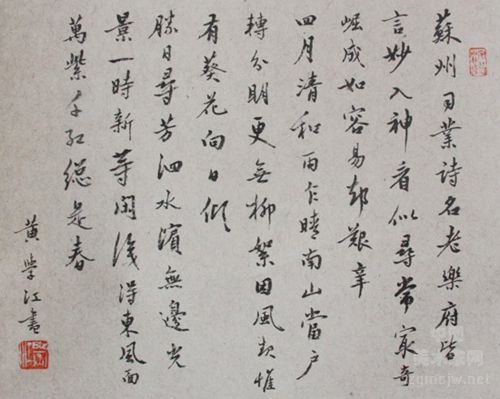 蘇州司業詩名老樂府皆
言妙入神看似尋常冣奇
崛成如容易却艱辛
四月清和雨乍晴南山當户
轉分明更無柳絮因風起惟
有葵花向日傾
勝日尋芳泗水濱無邊光
景一時新等閑識得東風面
萬紫千紅總是春
黄學江書
zgmsjw.net